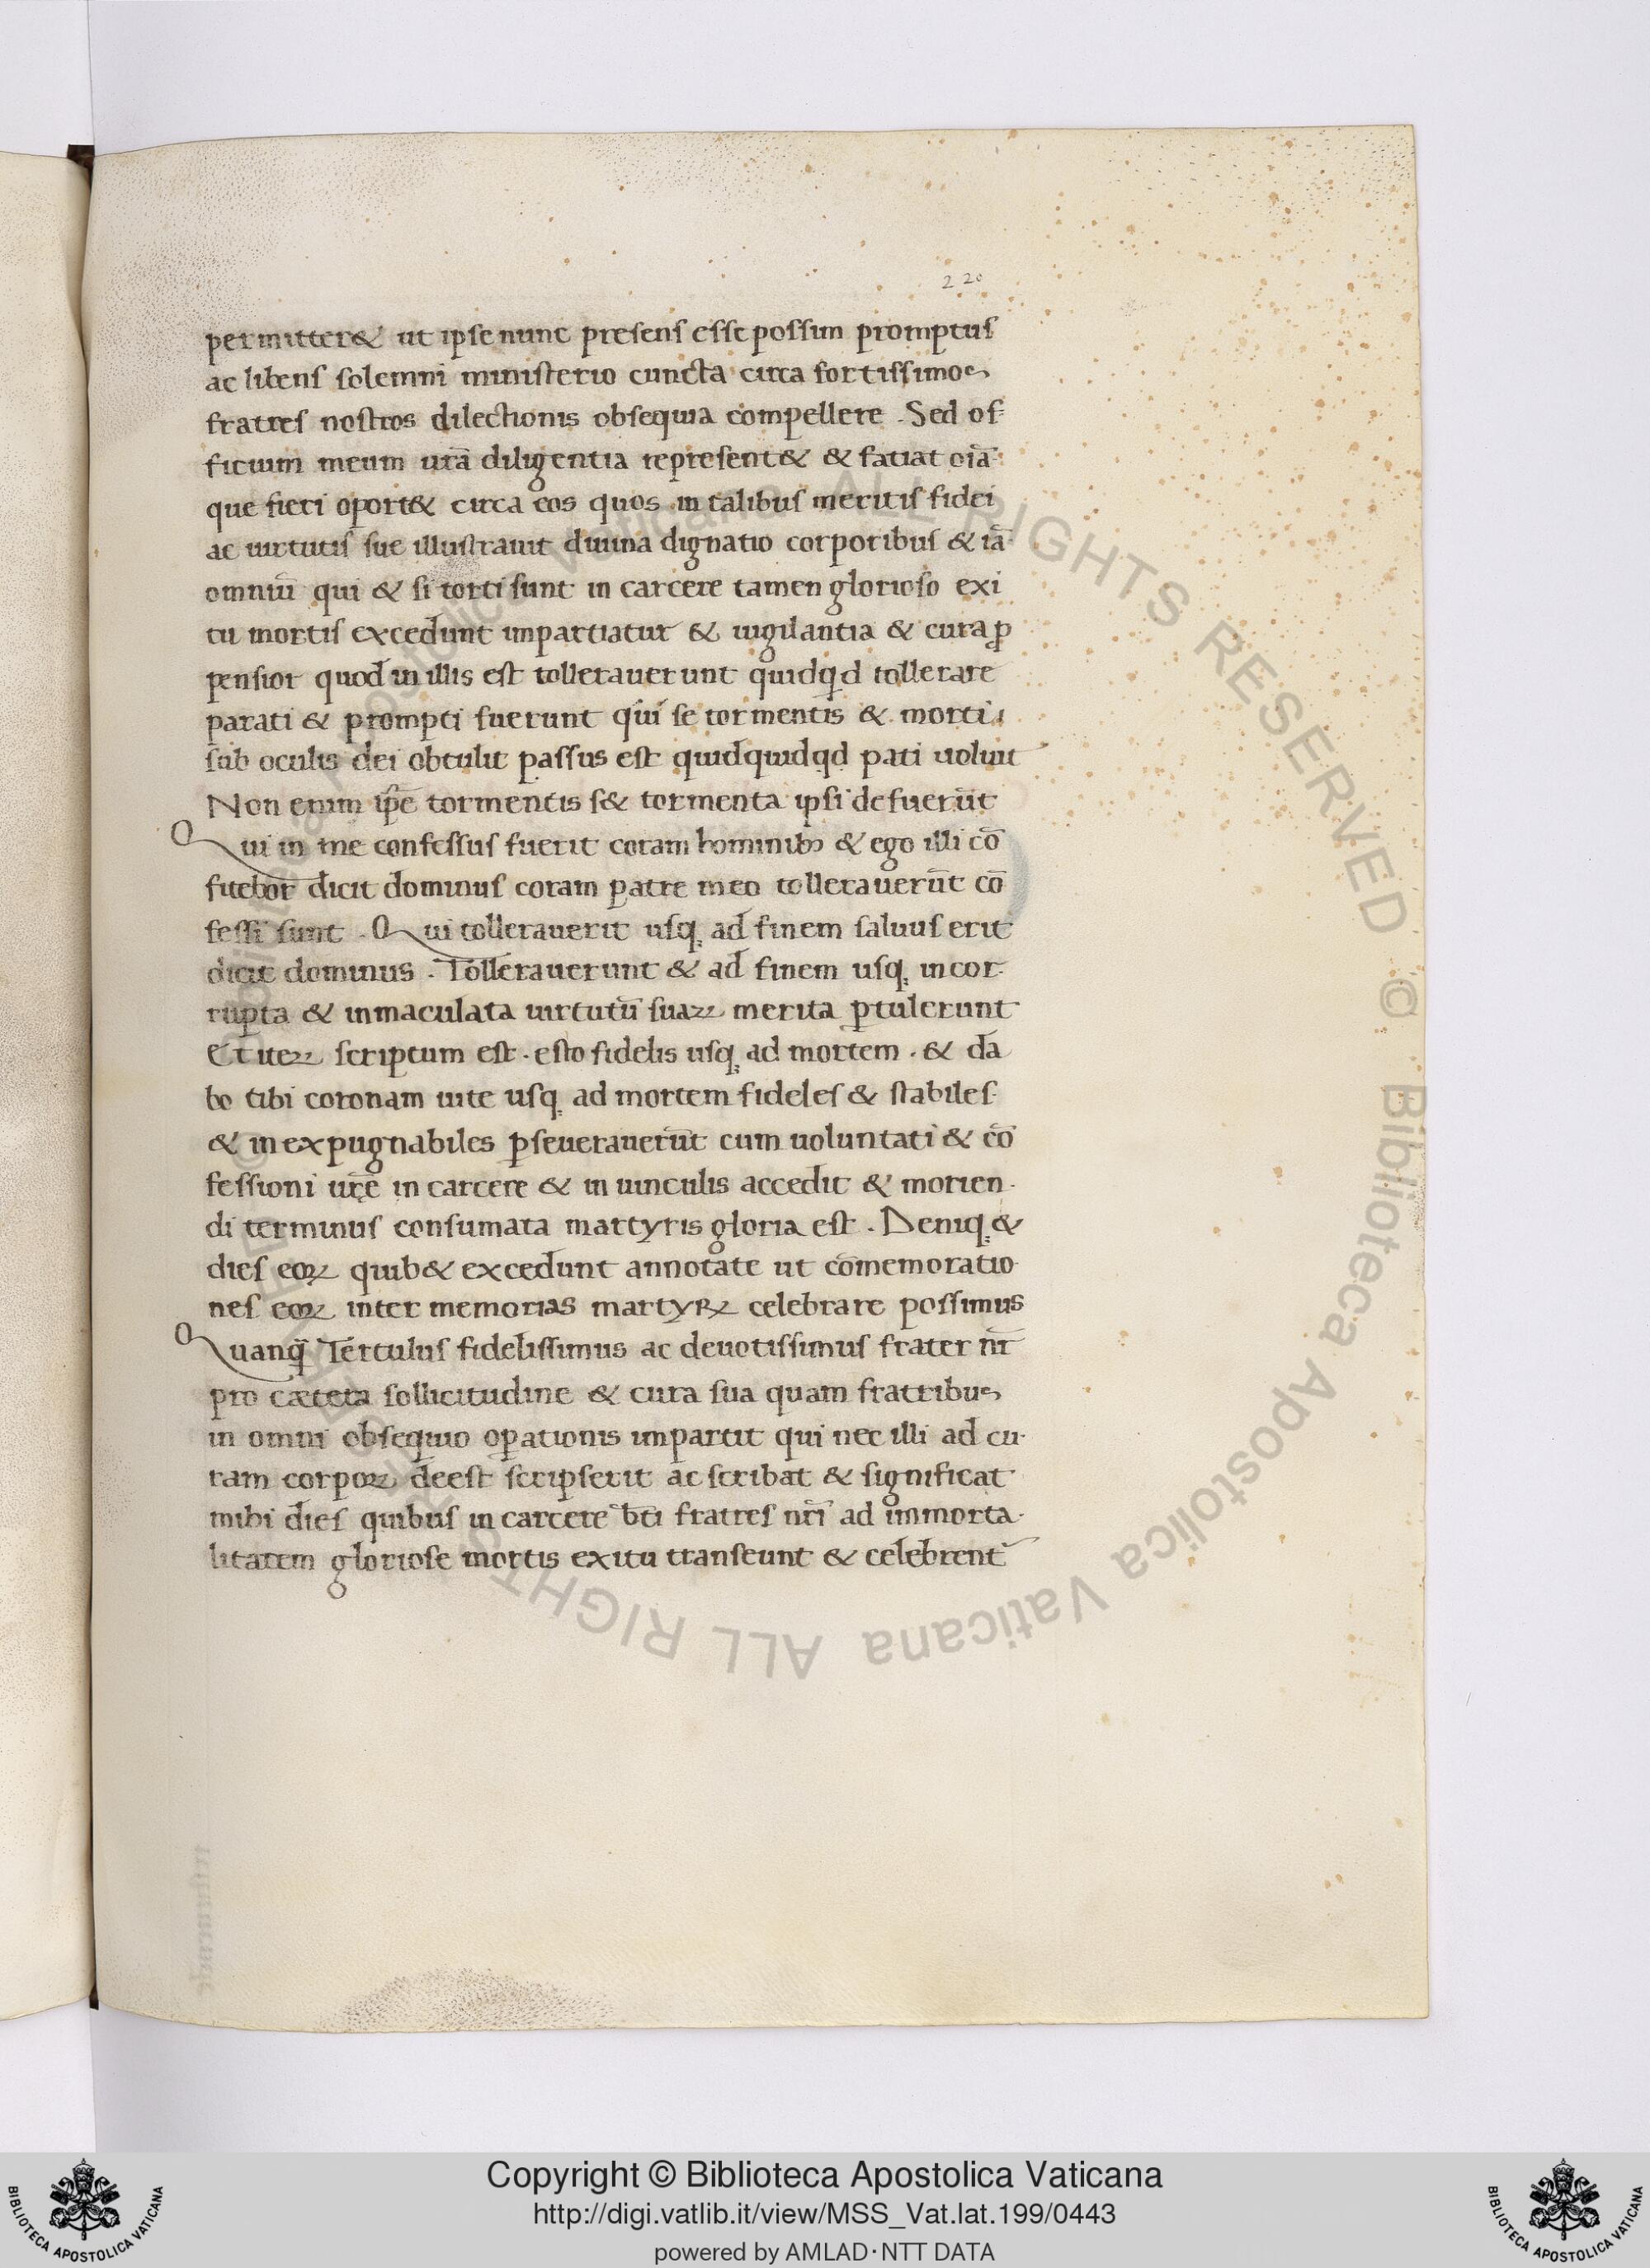 220
permitter& ut ipse nunc presens esse possim promptus
ac libens solemni ministerio cuncta circa fortissimos
fratres nostros dilectionis obsequia compellere . Sed of-
ficium meum urā diligentia represent& & fatiat oīa
que fieri oport& circa eos quos in talibus meritis fidei
ac uirtutis sue illustrauit diuina dignatio corporibus & iā
omniū qui & si torti sunt in carcere tamen glorioso exi
tu mortis excedunt impartiatur & uigilantia & cura ꝓ
pensior quod in illis est tollerauerunt quidqd tollerare
parati & prompti fuerunt qui se tormentis & morti
sub oculis dei obtulit passus est quidquidqd pati uoluit
Non enim ip̄e tormentis s& tormenta ipsi defuerūt
Qui in me confessus fuerit coram hominibꝰ & ego illi cō
fitebor dicit dominus coram patre meo tollerauerūt cō
fessi sunt . Qui tollerauerit usq; ad finem saluus erit
dicit dominus . Tollerauerunt & ad finem usq; incor-
rupta & inmaculata uirtutū suaꝝ merita ꝑtulerunt
Et iteꝝ scriptum est . esto fidelis usq; ad mortem . & da
bo tibi coronam uite usq; ad mortem fideles & stabiles
& inexpugnabiles ꝑseuerauerūt cum uoluntati & cō
fessioni ur̄e in carcere & in uinculis accedit & morien-
di terminus consumata martyris gloria est . Deniq; &
dies eoꝝ quib& excedunt annotate ut cōmemoratio
nes eoꝝ inter memorias martyꝝ celebrare possimus
Quanq̄ Tertulus fidelissimus ac deuotissimus frater nr̄
pro cætera sollicitudine & cura sua quam fratribus
in omni obsequio oꝑationis impartit qui nec illi ad cu-
ram corpoꝝ deest scripserit ac scribat & significat
mihi dies quibus in carcere bt̄i fratres nr̄i ad immorta-
litatem gloriose mortis exitu transeunt & celebrent
© Biblioteca Apostolica Vaticana ALL RIGHTS RESERVED
Copyright © Biblioteca Apostolica Vaticana
http://digi.vatlib.it/view/MSS_Vat.lat.199/0443
powered by AMLAD·NTT DATA
BIBLIOTECA APOSTOLICA VATICANA
BIBLIOTECA APOSTOLICA VATICANA